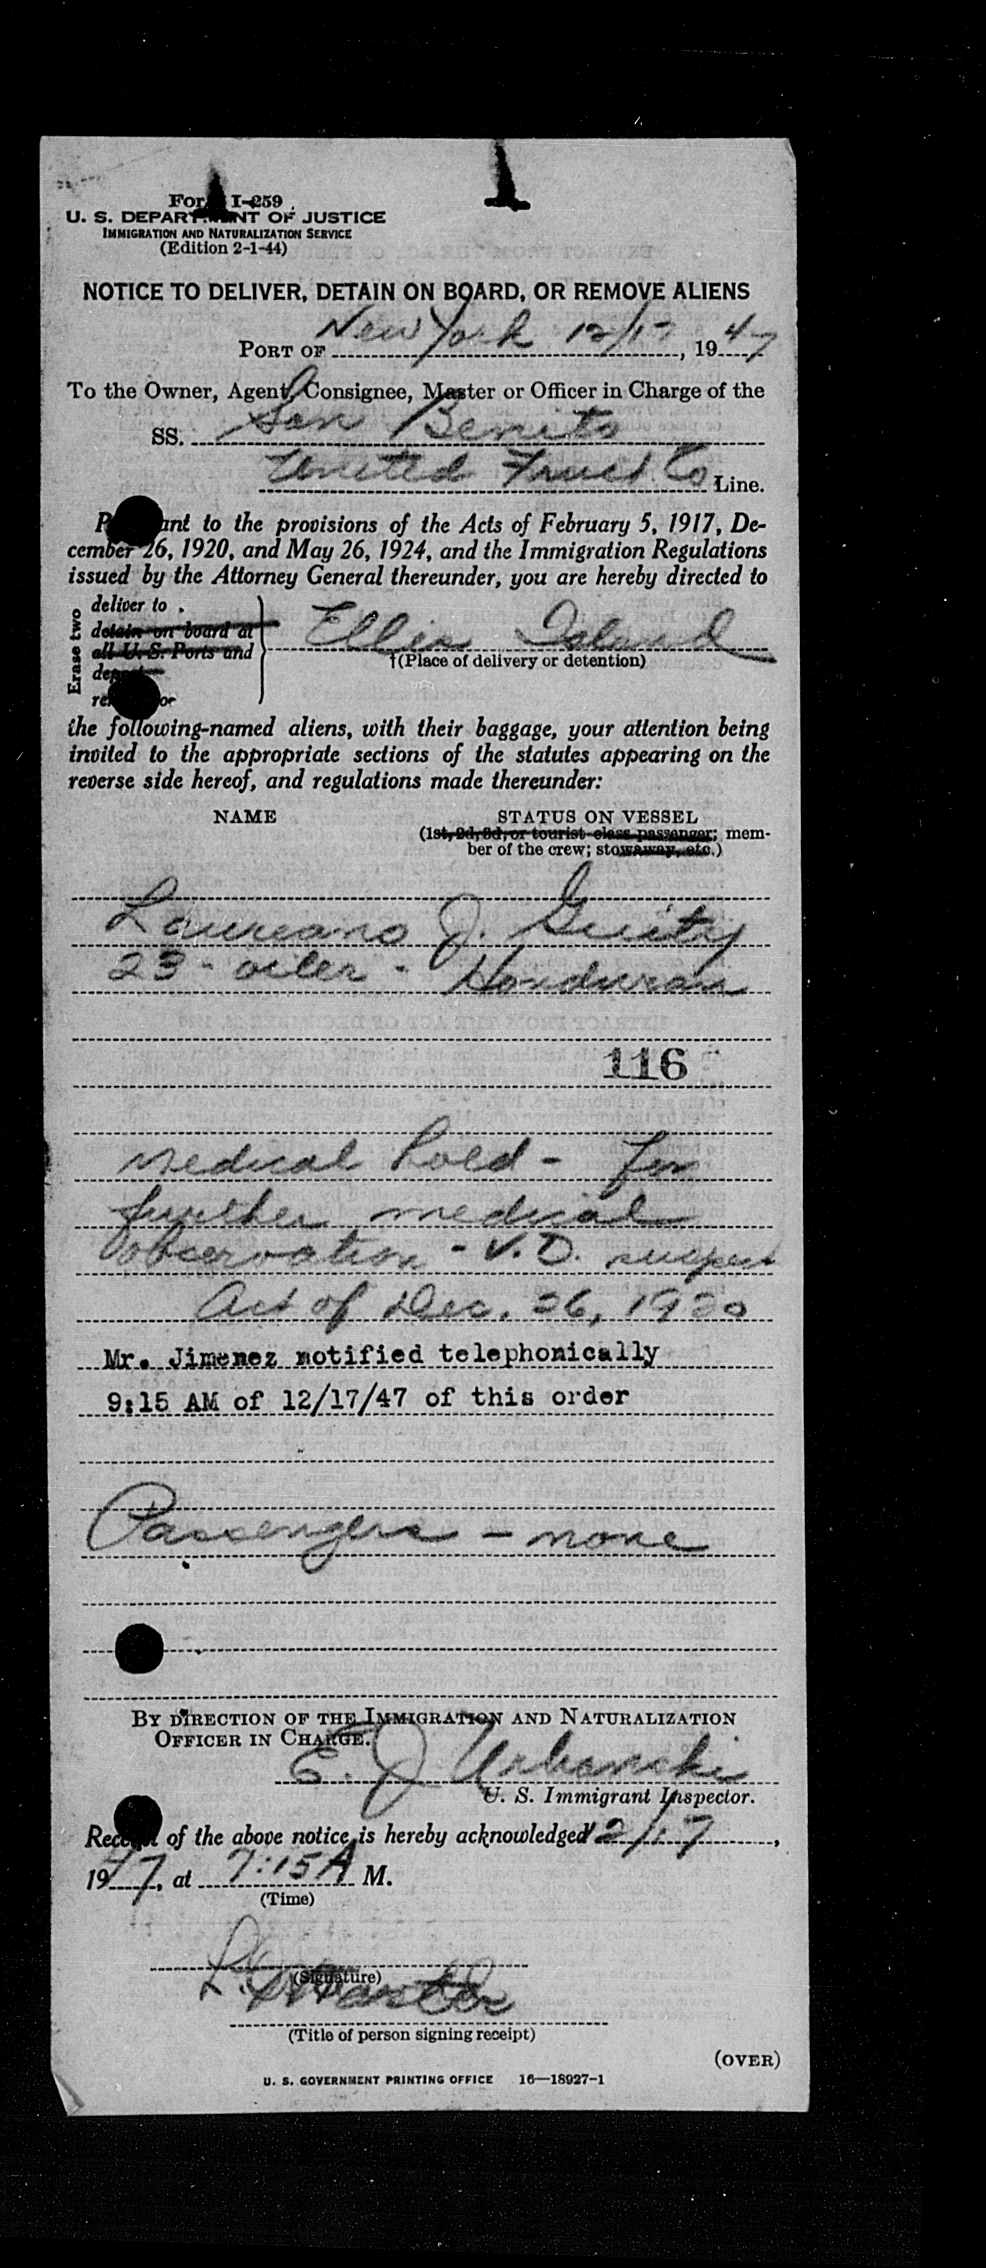 Form I-259
U. S. DEPARTMENT OF JUSTICE
IMMIGRATION AND NATURALIZATION SERVICE
(Edition 2-1-44)
NOTICE TO DELIVER, DETAIN ON BOARD, OR REMOVE ALIENS
PORT OF New York 12/17, 1947
To the Owner, Agent, Consignee, Master or Officer in Charge of the
SS. San Benito
United Fruit Co Line.
Pursuant to the provisions of the Acts of February 5, 1917, De-
cember 26, 1920, and May 26, 1924, and the Immigration Regulations
issued by the Attorney General thereunder, you are hereby directed to
Erase two
deliver to
detain on board at
all U. S. Ports and
deport
remove or
Ellis Island
†(Place of delivery or detention)
the following-named aliens, with their baggage, your attention being
invited to the appropriate sections of the statutes appearing on the
reverse side hereof, and regulations made thereunder:
NAME STATUS ON VESSEL
(1st, 2d, 3d, or tourist class passenger; mem-
ber of the crew; stowaway, etc.)
Laureano J. Guity
23 - oiler - Honduran
116
medical hold - for
further medical
observation - V.D. suspect
Act of Dec. 26, 1920
Mr. Jimenez notified telephonically
9:15 AM of 12/17/47 of this order
Passengers - none
BY DIRECTION OF THE IMMIGRATION AND NATURALIZATION
OFFICER IN CHARGE.
E. J Urbanski
U. S. Immigrant Inspector.
Receipt of the above notice is hereby acknowledged 12/17,
1947, at 7:15 A M.
(Time)
(Signature)
(Title of person signing receipt)
(OVER)
U. S. GOVERNMENT PRINTING OFFICE 16—18927-1